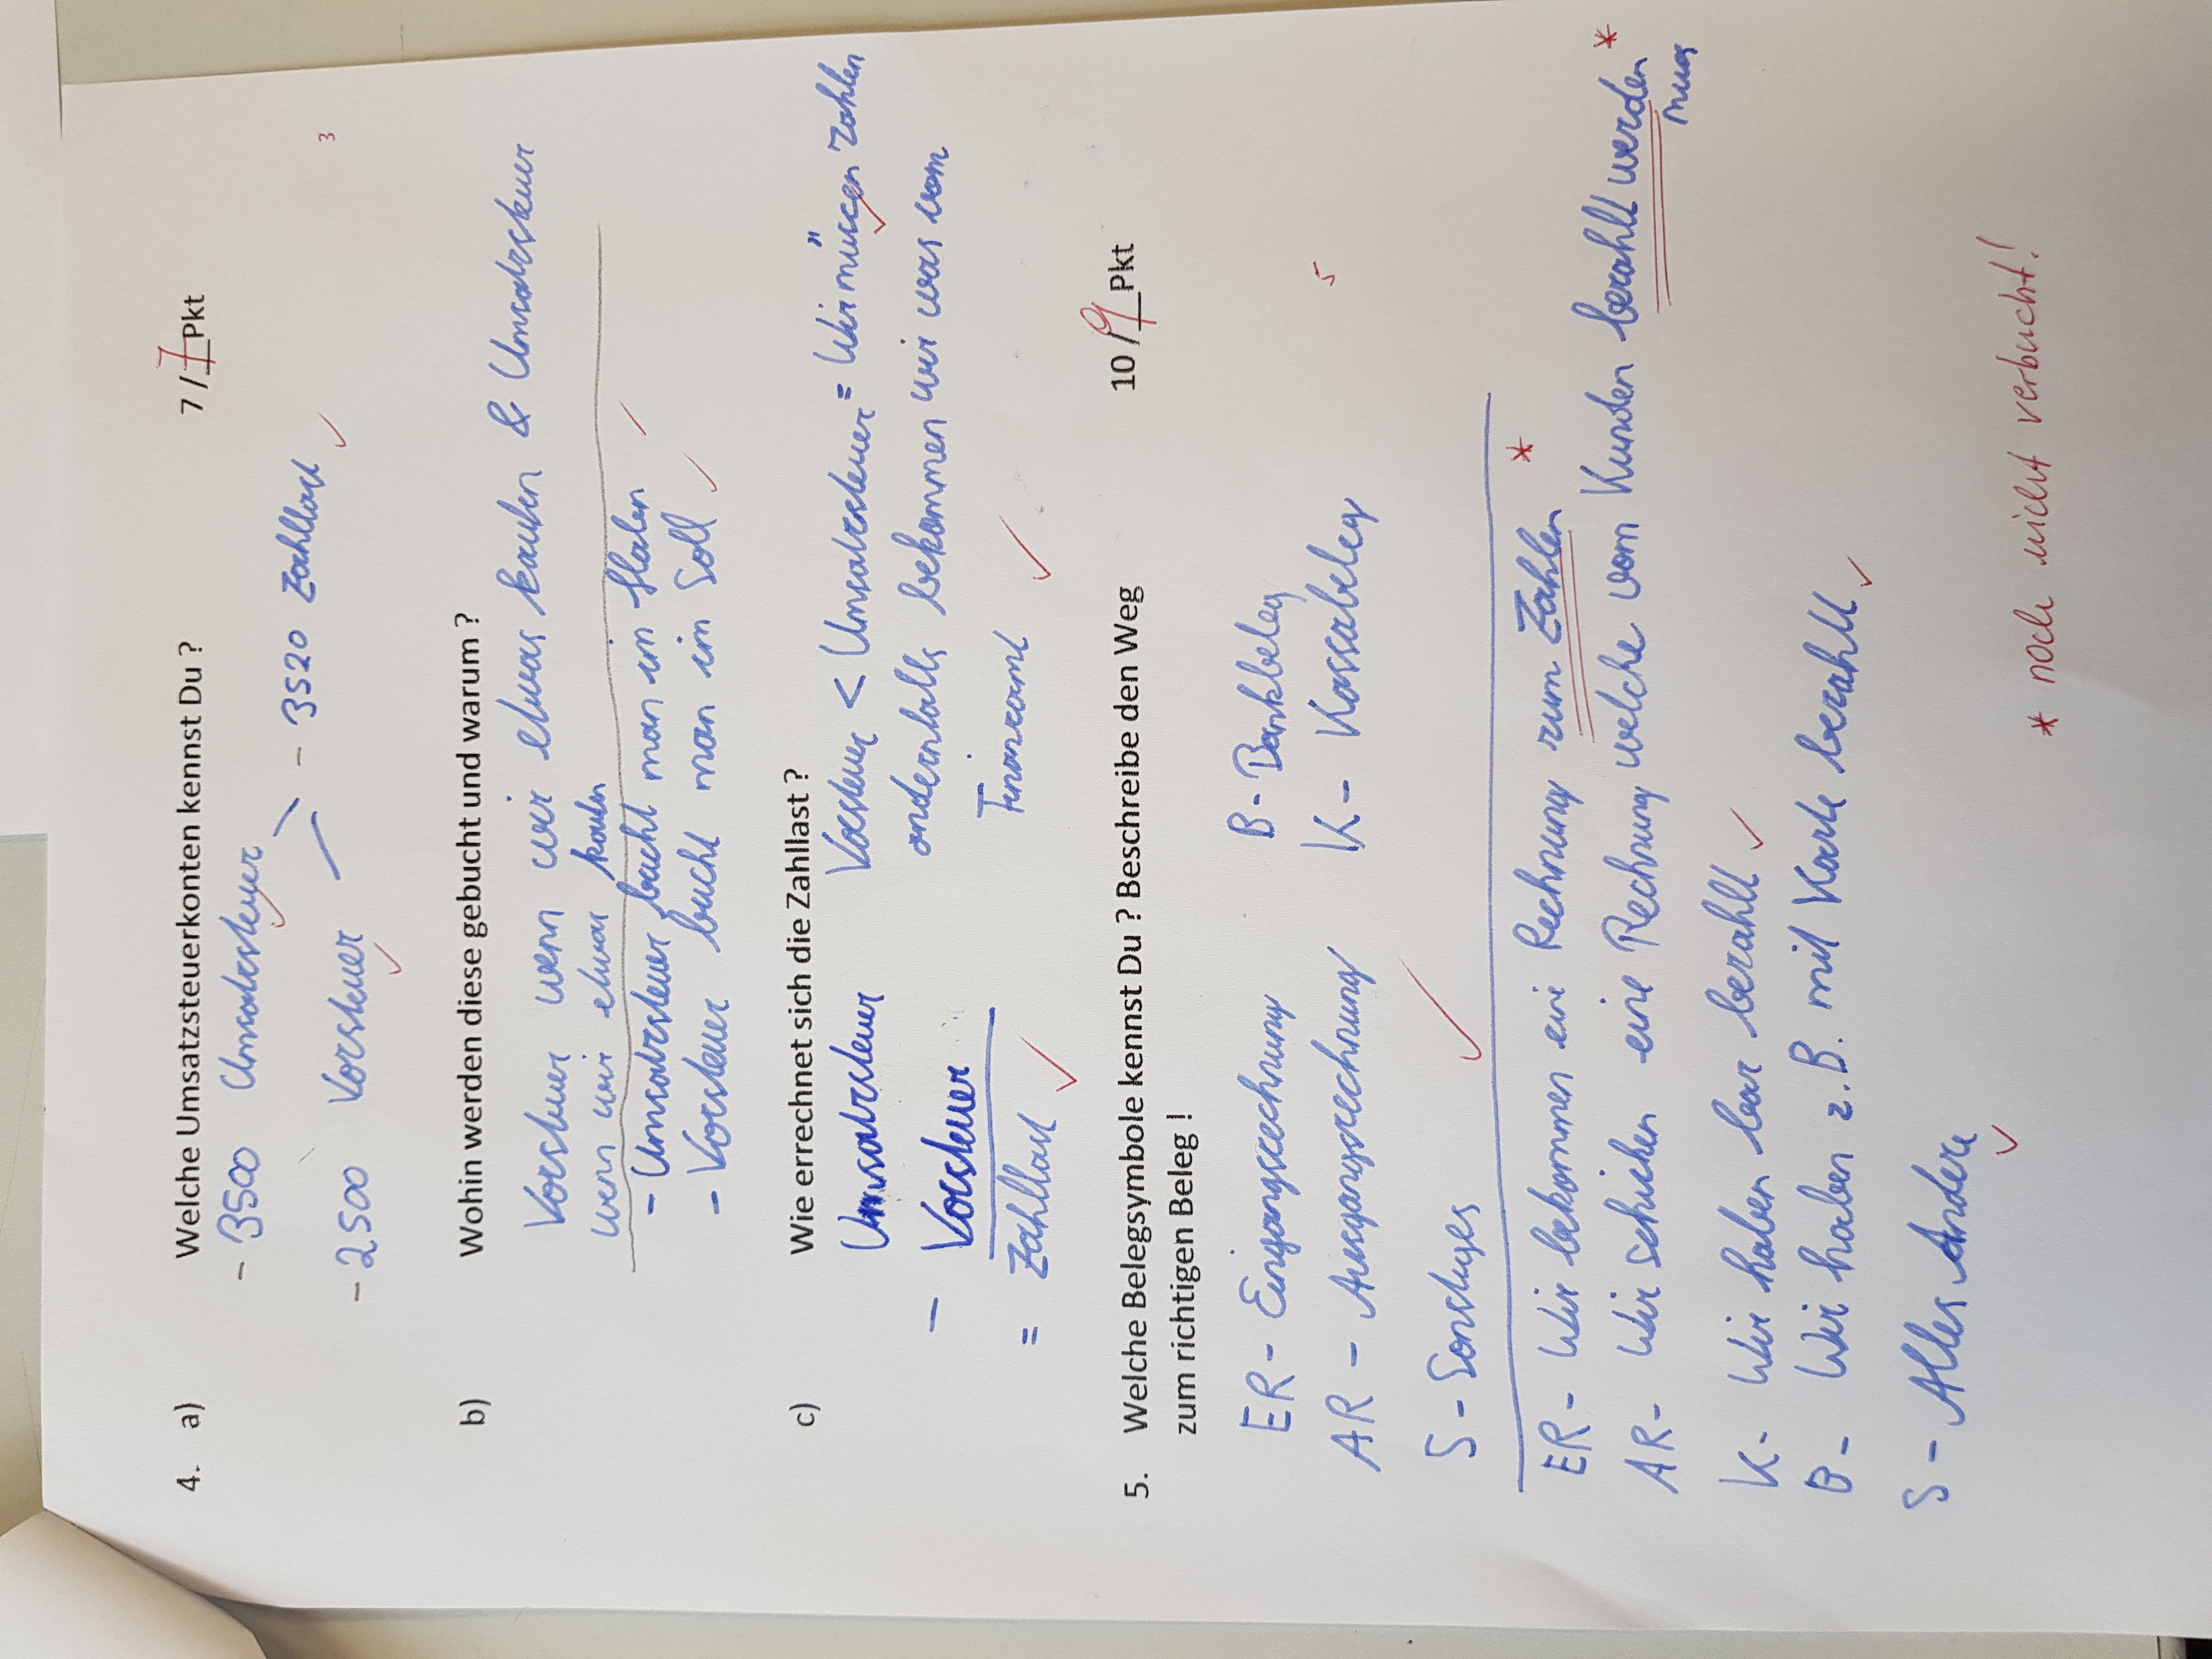 4. a) Welche Umsatzsteuerkonten kennst Du ? 7 / 7 Pkt
- 3500 Umsatzsteuer
- 3520 Zahllast
3
- 2500 Vorsteuer
b) Wohin werden diese gebucht und warum ?
Vorsteuer wenn wir etwas kaufen & Umsatzsteuer
wenn wir etwas kaufen
- Umsatzsteuer bucht man im Haben
- Vorsteuer bucht man im Soll
c) Wie errechnet sich die Zahllast ?
Umsatzsteuer Vorsteuer < Umsatzsteuer = Wir müssen zahlen
- Vorsteuer andernfalls bekommen wir was vom
= Zahllast Finanzamt
5. Welche Belegsymbole kennst Du ? Beschreibe den Weg 10 / 9 Pkt
zum richtigen Beleg !
ER - Eingangsrechnung B - Bankbeleg
AR - Ausgangsrechnung K - Kassabeleg 5
S - Sonstiges
ER - Wir bekommen eine Rechnung zum Zahlen *
AR - Wir schicken eine Rechnung welche vom Kunden bezahlt werden *
muss
K - Wir haben bar bezahlt
B - Wir haben z.B. mit Karte bezahlt
S - Alles Andere
* noch nicht verbucht!